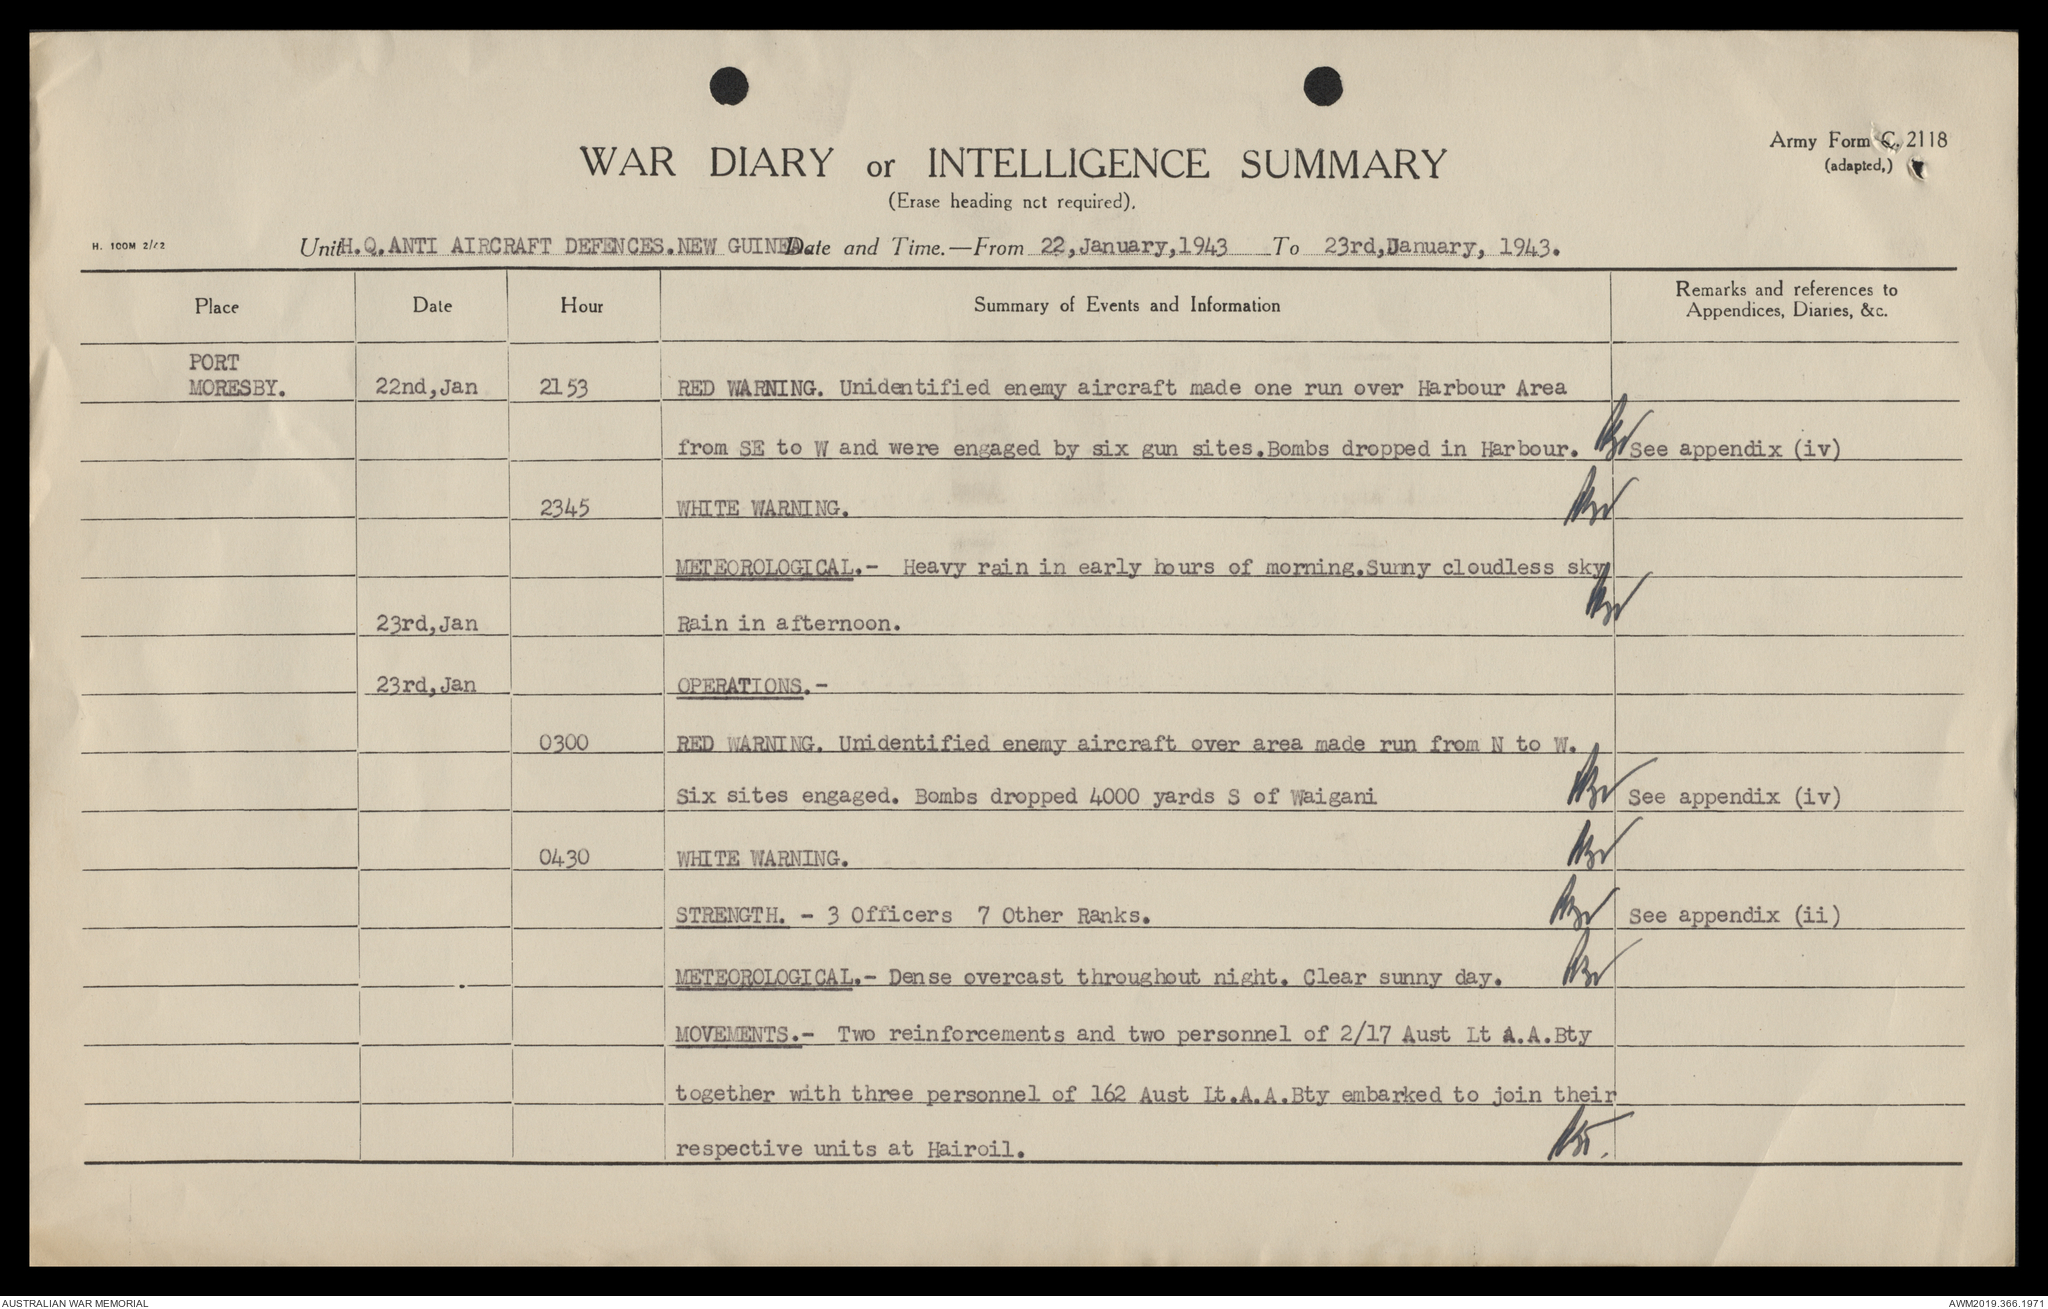 Army Form C. 2118
(adapted.)
WAR DIARY or INTELLIGENCE SUMMARY
(Erase heading nct required).
H. 100M 2/42
Unit H.Q.ANTI AIRCRAFT DEFENCES.NEW GUINEA. Date and Time.—From 22,January,1943 To 23rd,January, 1943.
Place Date Hour Summary of Events and Information Remarks and references to
Appendices, Diaries, &c.
PORT
MORESBY. 22nd,Jan 2153 RED WARNING. Unidentified enemy aircraft made one run over Harbour Area
from SE to W and were engaged by six gun sites.Bombs dropped in Harbour. See appendix (iv)
2345 WHITE WARNING.
METEOROLOGICAL.- Heavy rain in early hours of morning.Sunny cloudless sky
23rd,Jan Rain in afternoon.
23rd,Jan OPERATIONS.-
0300 RED WARNING. Unidentified enemy aircraft over area made run from N to W.
Six sites engaged. Bombs dropped 4000 yards S of Waigani See appendix (iv)
0430 WHITE WARNING.
STRENGTH. - 3 Officers 7 Other Ranks. See appendix (ii)
METEOROLOGICAL.- Dense overcast throughout night. Clear sunny day.
MOVEMENTS.- Two reinforcements and two personnel of 2/17 Aust Lt A.A.Bty
together with three personnel of 162 Aust Lt.A.A.Bty embarked to join their
respective units at Hairoil.
AUSTRALIAN WAR MEMORIAL
AWM2019.366.1971